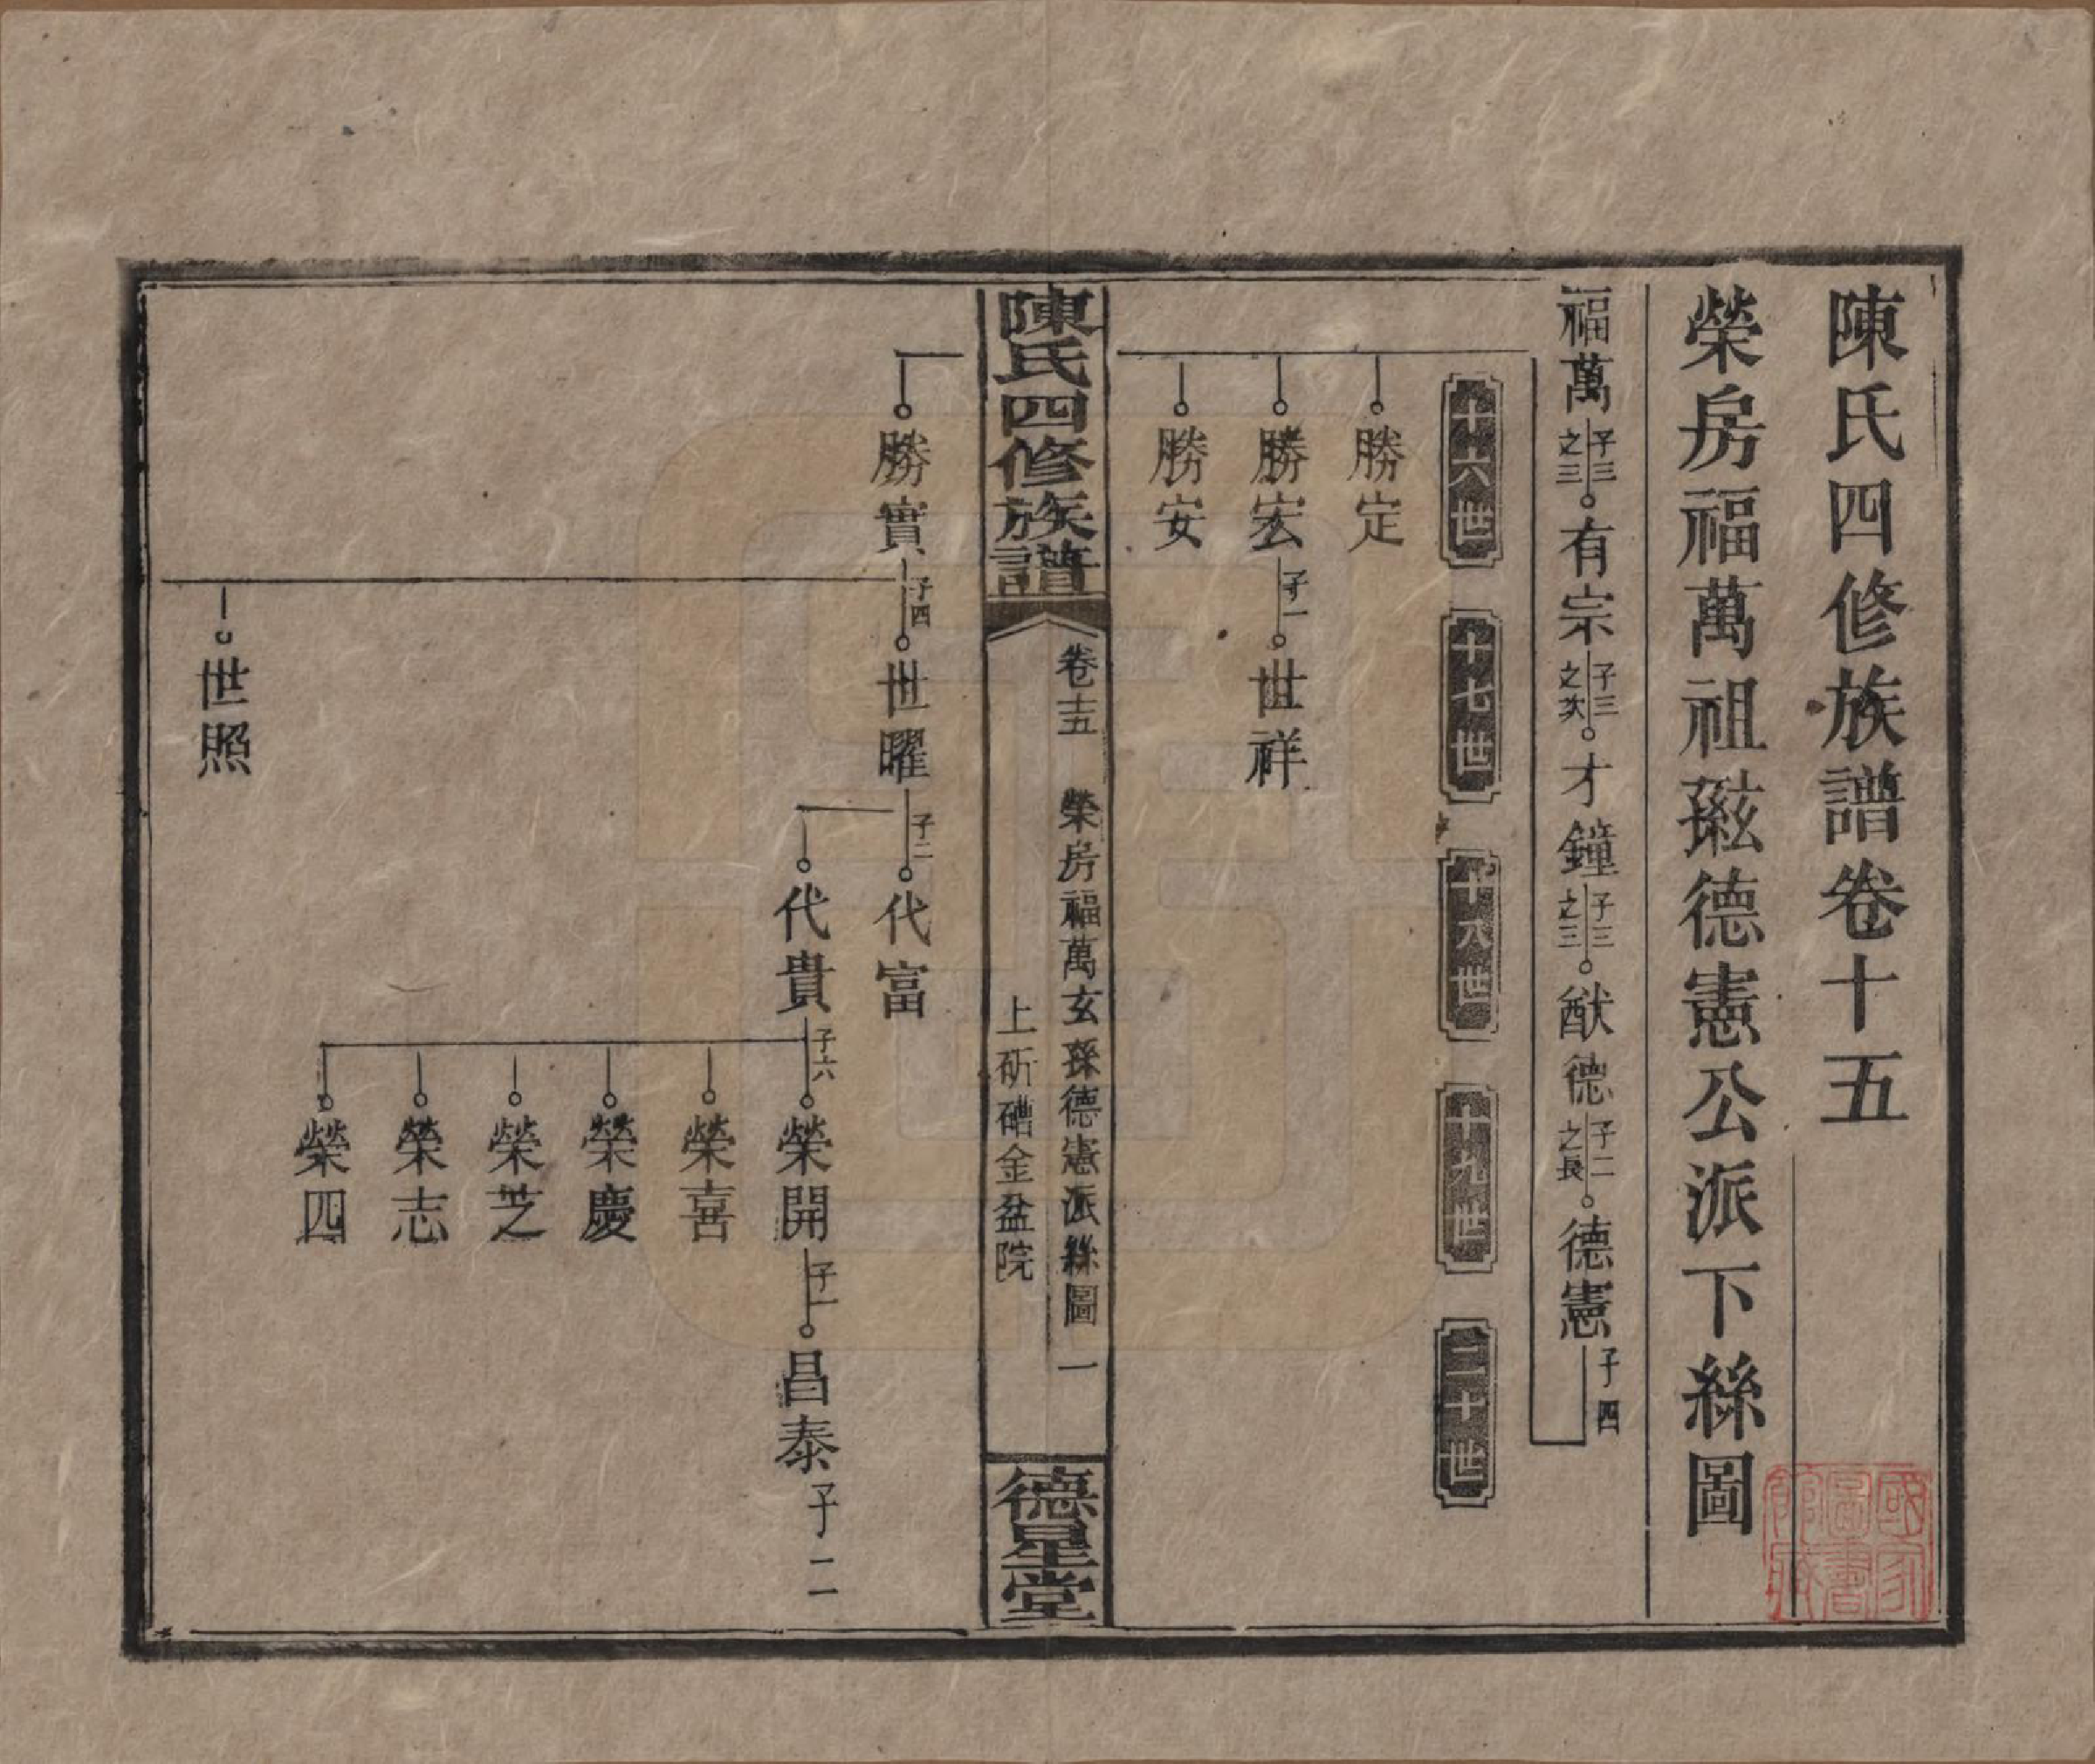 陳氏四修族譜卷十五
榮房福萬祖玆德憲公派下絲圖
福萬 子三之三 有宗 子三之次 才鐘 子三之三 猷德 子二之長 德憲 子四
十六世 十七世 十八世 十九世 二十世
勝定
勝宏 子一 世祥
勝安
陳氏四修族譜
卷十五 榮房福萬玄孫德憲派絲圖 一
上斫磳金盆院
德星堂
勝實 子四 世曜 子二 代富
代貴 子六 榮開 子一 昌泰 子二
榮喜
榮慶
榮芝
榮志
榮四
世照
國家圖書館藏